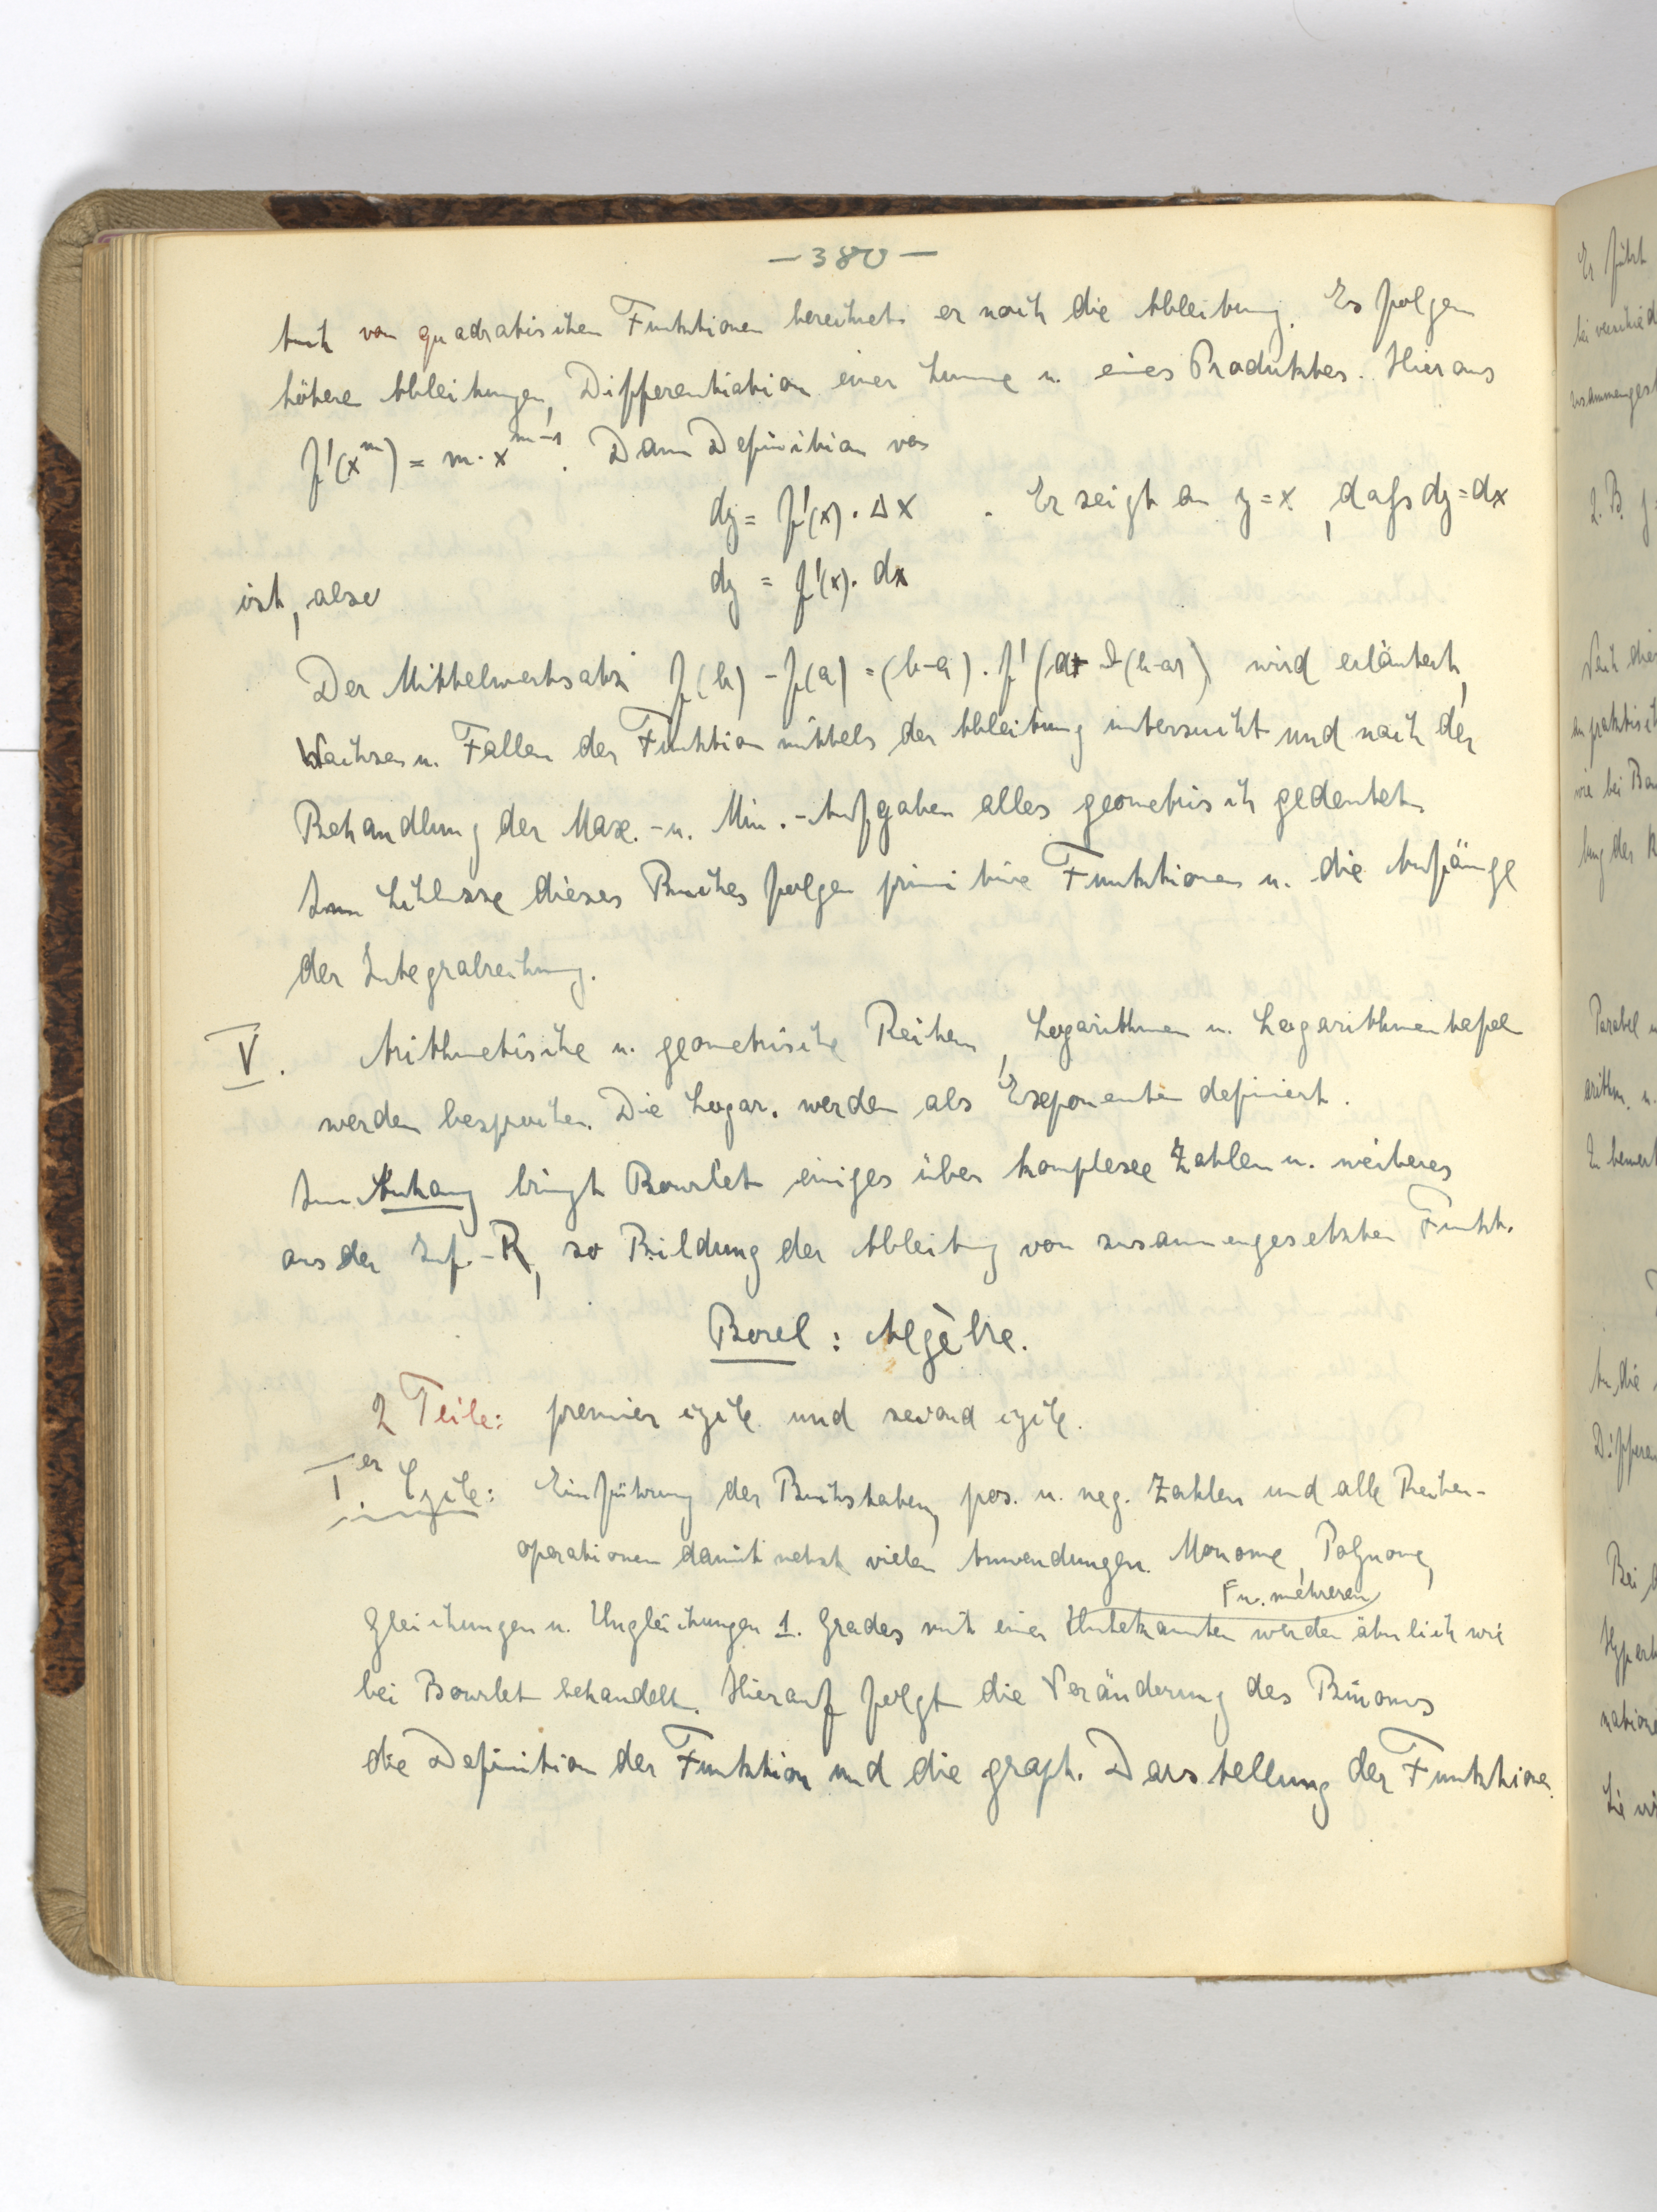 — 380 —
Auch von quadratischen Funktionen berechnet er noch die Ableitung. Es folgen
höhere Ableitungen, Differentiation einer Summe u. eines Produktes. Hieraus
f'(x^m) = m·x^{m-1}. Dann Definition von
dy = f'(x)·Δx . Er zeigt an y = x, daß dy = dx
ist, also dy = f'(x)·dx
Der Mittelwertsatz f(b) - f(a) = (b-a)·f'(a+ϑ(b-a)) wird erläutert,
Wachsen u. Fallen der Funktion mittels der Ableitung untersucht und nach der
Behandlung der Max.- u. Min.-Aufgaben alles geometrisch gedeutet.
Zum Schlusse dieses Buches folgen primitive Funktionen u. die Anfänge
der Integralrechnung.
V. Arithmetische u. geometrische Reihen, Logarithmen u. Logarithmentafeln
werden besprochen. Die Logar. werden als Exponenten definiert.
Im Anhang bringt Bourlet einiges über komplexe Zahlen u. weiteres
aus der Inf.-R, so Bildung der Ableitung von zusammengesetzten Funkt.
Borel: Algèbre.
2 Teile: premier cycle und second cycle.
I^er Cycle: Einführung der Buchstaben, pos. u. neg. Zahlen und alle Rechen-
operationen damit nebst vielen Anwendungen. Monome, Polynome,
u. mehreren
Gleichungen u. Ungleichungen 1. Grades mit einer Unbekannten werden ähnlich wie
bei Bourlet behandelt. Hierauf folgt die Veränderung des Binoms
die Definition der Funktion und die graph. Darstellung der Funktionen.
Er führt
2. B. y =
Nach die
wie bei Bou
Parabel u
arithm. u.
Zu bemerk
Differen
Bei
Hyperb